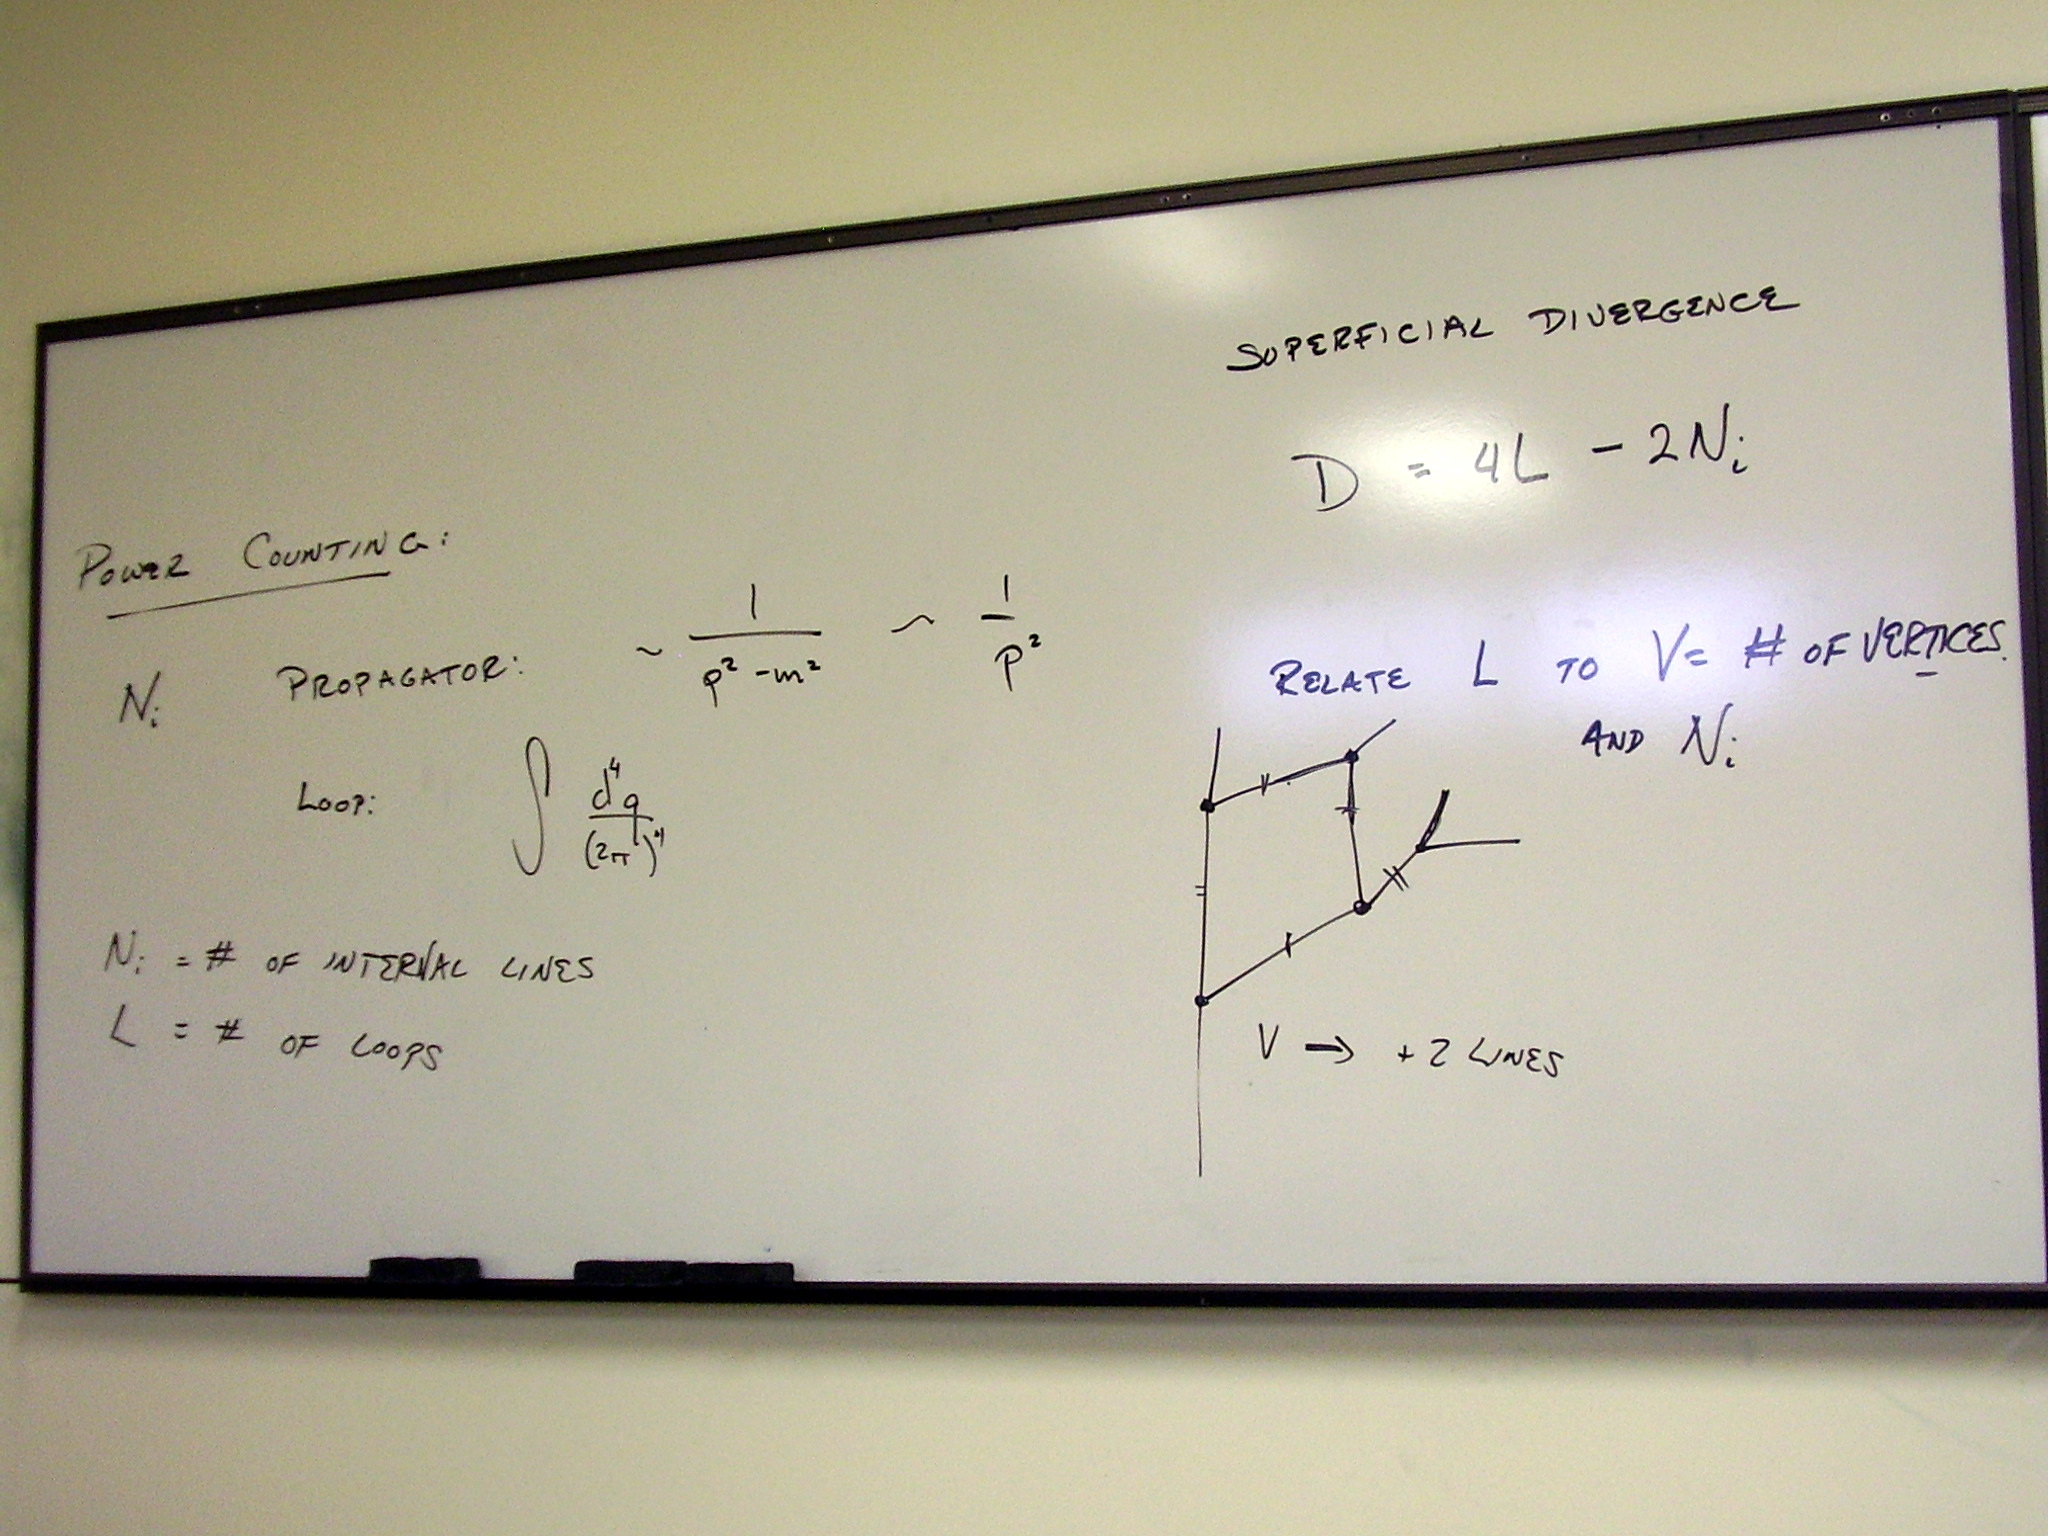 POWER COUNTING:
Nᵢ PROPAGATOR: ~ 1/(p² - m²) ~ 1/p²
LOOP: ∫ d⁴q/(2π)⁴
Nᵢ = # OF INTERNAL LINES
L = # OF LOOPS
SUPERFICIAL DIVERGENCE
D = 4L - 2Nᵢ
RELATE L TO V = # OF VERTICES.
AND Nᵢ
V → + 2 LINES